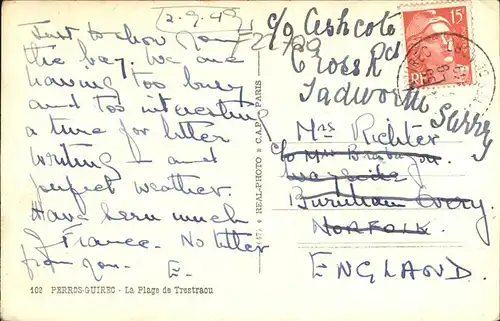 2.9.49
Just to show you
the bay. We are
having too busy
and too interesting
a time for letter
writing - and
perfect weather.
Have seen much
of France. No letter
from you. E.
102 PERROS-GUIREC - La Plage de Trestraou
(47) * REAL-PHOTO * C.A.P. * PARIS
c/o Ashcote
Cross Rd
Tadworth
Surrey
15F
RF
Mrs Richter
c/o Mrs
Wayside
Burnham Overy.
NORFOLK
ENGLAND.